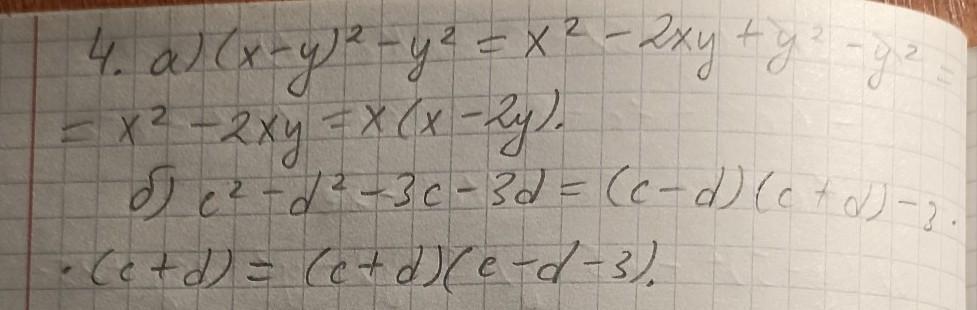 4. а) (x-y)² - y² = x² - 2xy + y² - y² =
= x² - 2xy = x(x - 2y).
б) c² - d² - 3c - 3d = (c - d)(c + d) - 3 ·
· (c + d) = (c + d)(c - d - 3).